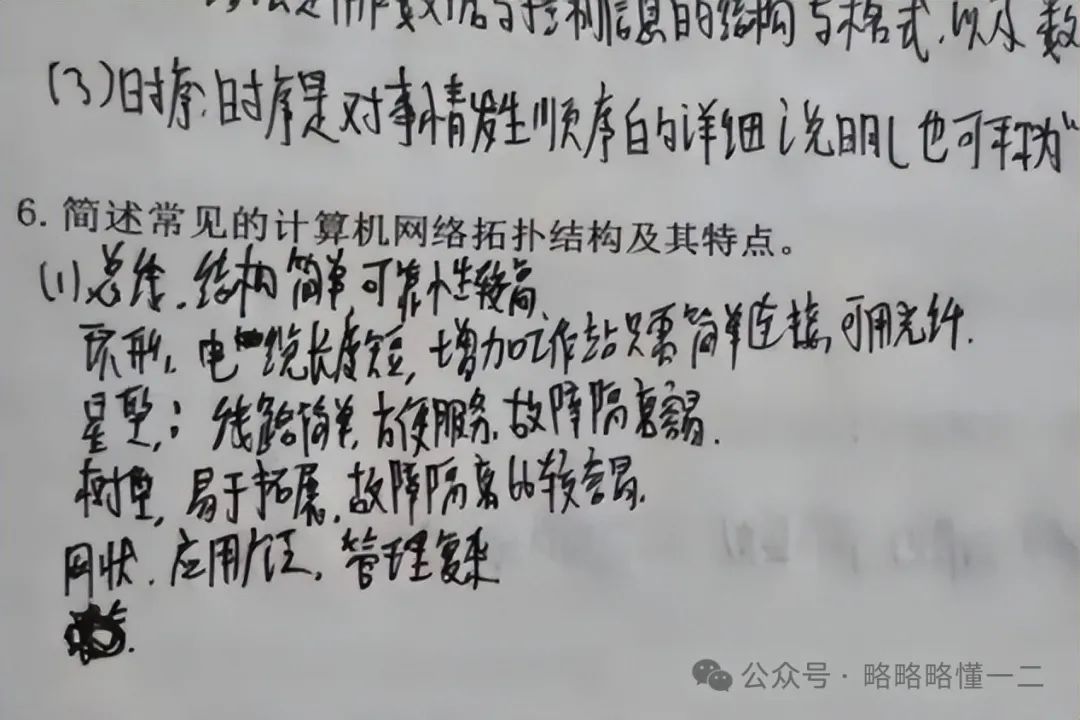 用户数据与控制信息的结构与格式,以及数
(3)时序:时序是对事情发生顺序的详细说明(也可称为“
6. 简述常见的计算机网络拓扑结构及其特点。
(1)总线.结构简单,可靠性较高.
环形:电缆长度短,增加工作站只需简单连接,可用光纤.
星型:线路简单,方便服务.故障隔离容易.
树型,易于拓展.故障隔离比较容易.
网状.应用广泛.管理复杂
公众号·略略略懂一二